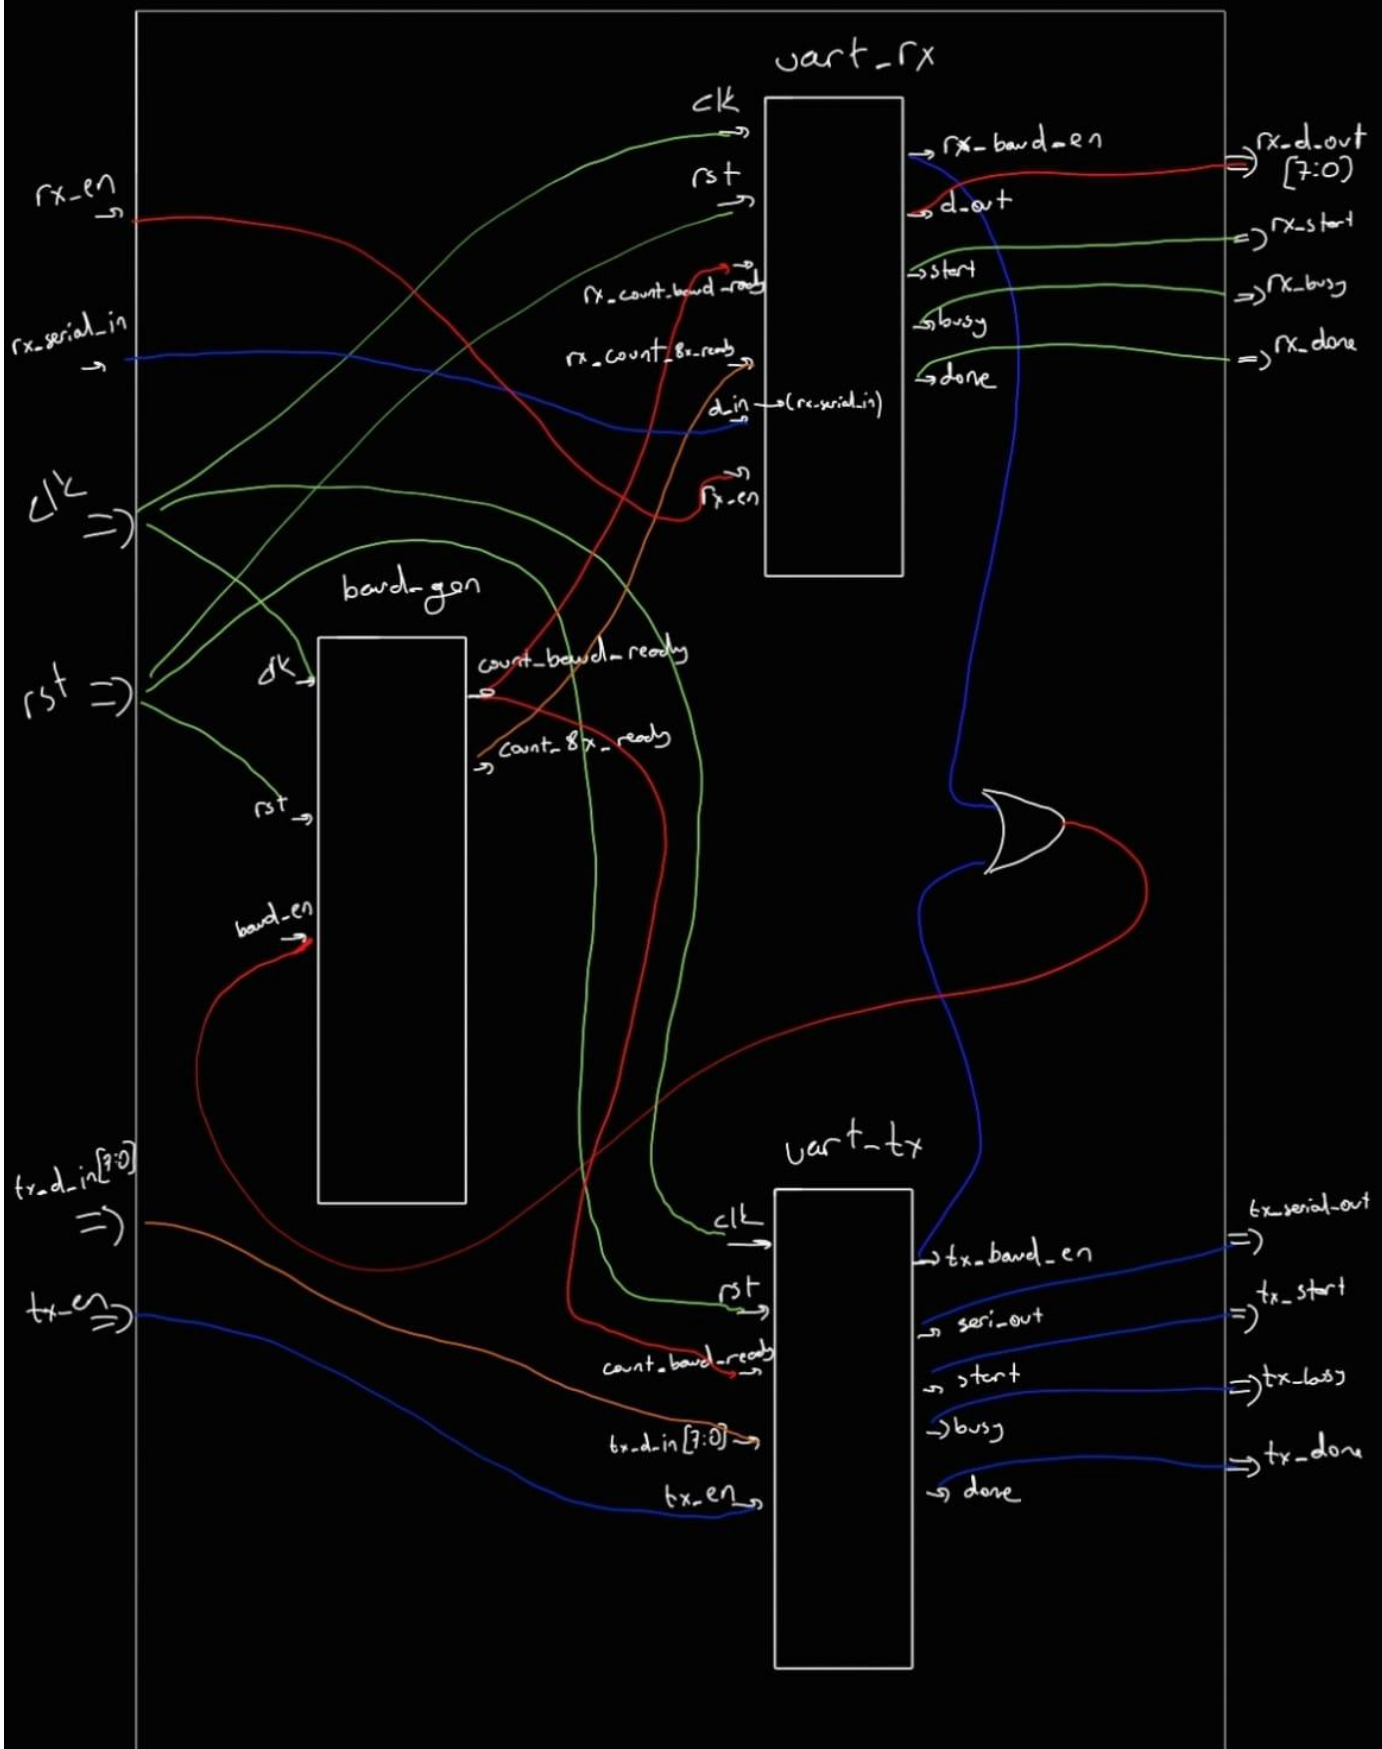 uart_rx
clk
rst
rx_count_baud_ready
rx_count_8x_ready
d_in →(rx_serial_in)
rx_en
rx_baud_en
d_out
start
busy
done
rx_d_out
[7:0]
rx_start
rx_busy
rx_done
rx_en
rx_serial_in
clk
rst
baud_gen
clk
rst
baud_en
count_baud_ready
count_8x_ready
tx_d_in[7:0]
tx_en
uart_tx
clk
rst
count_baud_ready
tx_d_in[7:0]
tx_en
tx_baud_en
seri_out
start
busy
done
tx_serial_out
tx_start
tx_busy
tx_done